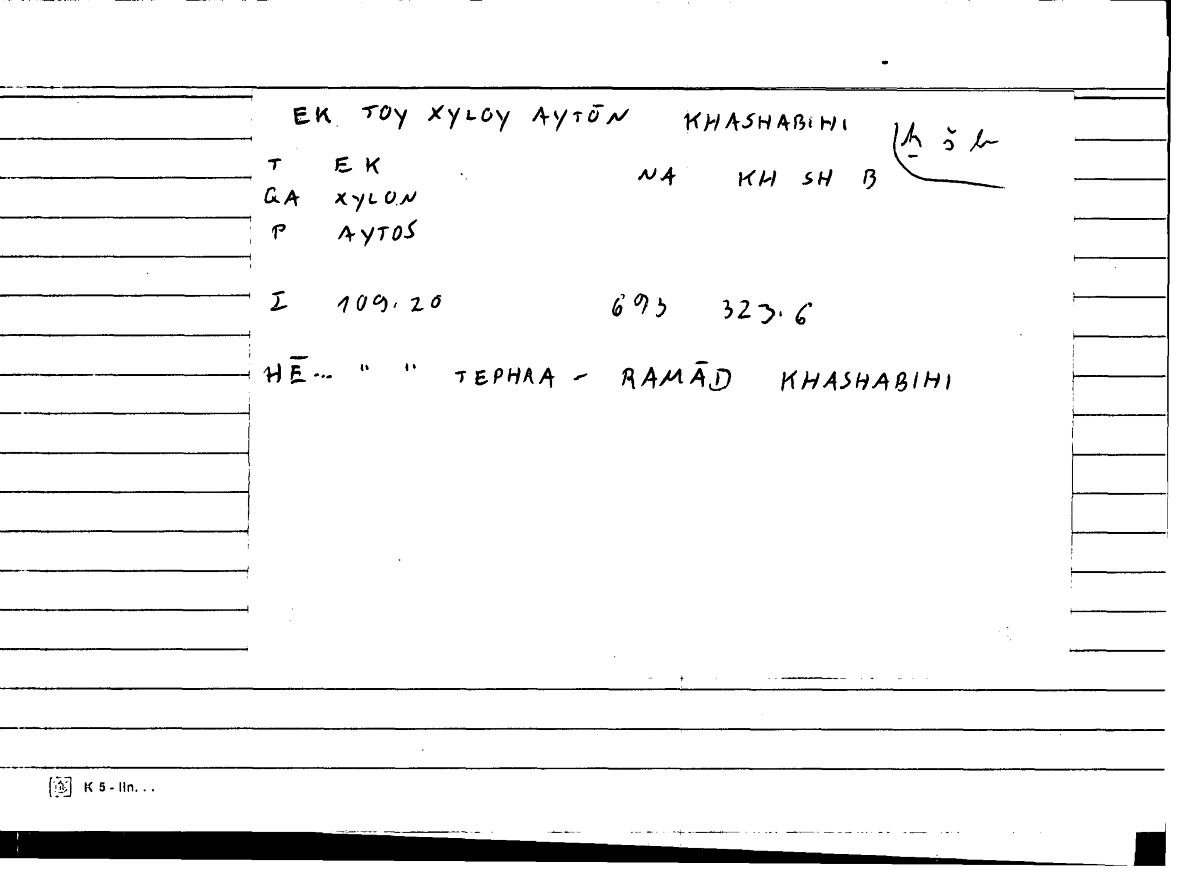 EK TOY XYLOY AYTŌN KHASHABIHI ḫ š b
T EK NA KH SH B
QA XYLON
P AYTOS
I 109.20 693 323.6
HĒ... " " TEPHRA - RAMĀD KHASHABIHI
K 5 - lin...